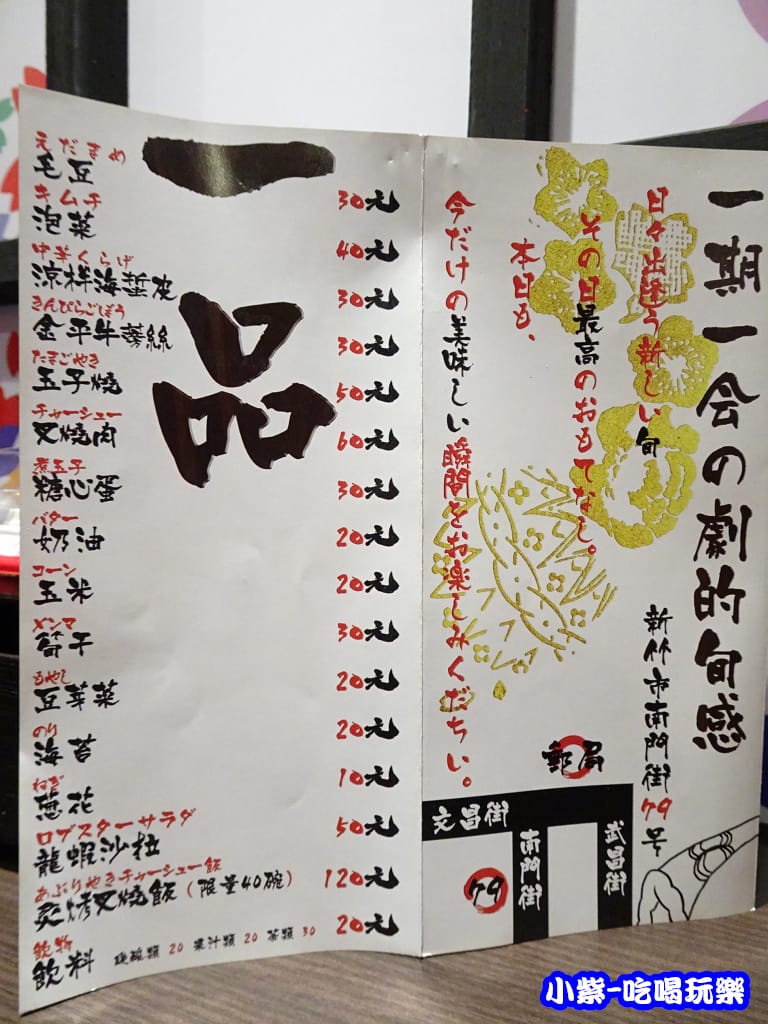 一品
えだまめ
毛豆 30元
キムチ
泡菜 40元
中華くらげ
涼拌海蜇皮 30元
きんぴらごぼう
金平牛蒡絲 30元
たまごやき
玉子燒 50元
チャーシュー
叉燒肉 60元
煮玉子
糖心蛋 30元
バター
奶油 20元
コーン
玉米 20元
メンマ
筍干 30元
もやし
豆芽菜 20元
のり
海苔 20元
ねぎ
蔥花 10元
ロブスターサラダ
龍蝦沙拉 50元
あぶりやきチャーシュー飯
炙烤叉燒飯（限量40碗） 120元
飲物
飲料 碳酸類 20 果汁類 20 茶類 30 20元
一期一会の劇的旬感
日々出逢う新しい旬
その日最高のおもてなし。
本日も、
今だけの美味しい瞬間をお楽しみくだちい。
新竹市南門街79号
郵局
文昌街
南門街
武昌街
79
小紫-吃喝玩樂